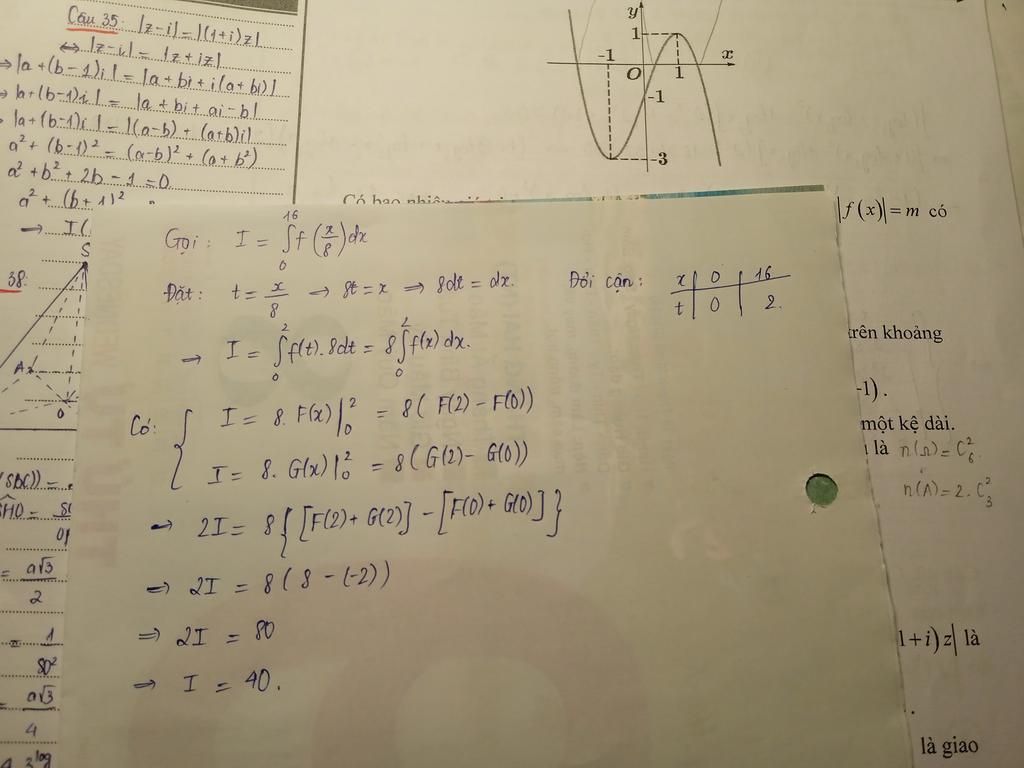 Câu 35: |z-i| = |(1+i)z|
⇔ |z-i| = |z+iz|
⇒ |a+(b-1)i| = |a+bi+i(a+bi)|
⇒ |a+(b-1)i| = |a+bi+ai-b|
|a+(b-1)i| = |(a-b)+(a+b)i|
a² + (b-1)² = (a-b)² + (a+b²)
a² + b² + 2b - 1 = 0
a² + (b+1)²
→ I(
S
38:
A
O
(SBC)) =
HO =
= a√3/2
= 1
80²
= a√3/4
3^log
y
1
-1
O
1
x
-1
-3
Có bao nhiêu
|f(x)| = m có
trên khoảng
-1).
một kệ dài.
là n(Ω) = C₆².
n(A) = 2. C₃²
1+i)z| là
.
là giao
Gọi: I = ∫₀¹⁶ f(x/8)dx
Đặt: t = x/8 → 8t = x ⇒ 8dt = dx. Đổi cận: x | 0 | 16
t | 0 | 2.
→ I = ∫₀² f(t).8dt = 8∫₀² f(x)dx.
Có: { I = 8. F(x)|₀² = 8( F(2) - F(0))
I = 8. G(x)|₀² = 8(G(2) - G(0))
→ 2I = 8{[F(2) + G(2)] - [F(0) + G(0)]}
⇒ 2I = 8( 8 - (-2))
⇒ 2I = 80
⇒ I = 40.
THỨ TƯ WEDNESDAY